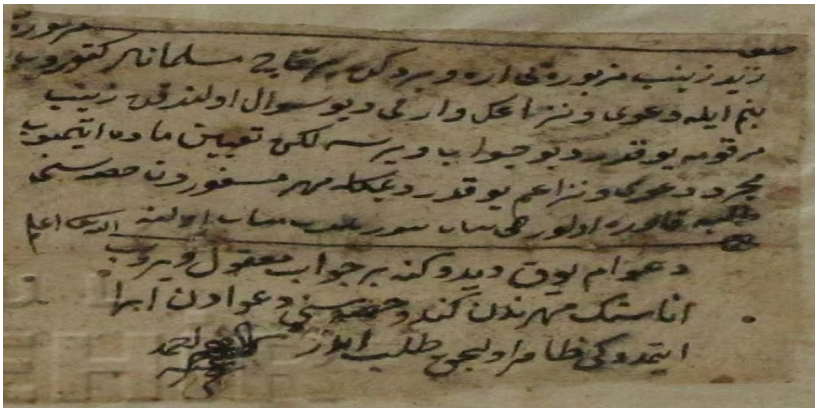 صورت
زيد زينب مزبوره‌نی اره ويردكده برقاچ مسلمانلر كتوروب
بنم ايله دعوی و نزاعك وارمی ديو سوال اولندقده زينب
مرقومه يوقدر ديو جواب ويرسه لكن تعيين ماده ايتميوب
مجرد دعوی و نزاعم يوقدر ديمكله مهر مسفوردن حصه‌سنی
طلبه قادره اولورمی بيان بيوريلوب مثاب اولنه الله اعلم
دعوام يوق ديدوكنه بر جواب معقول ويروب
اناسنك مهرندن كندو حصه‌سنی دعوادن ابرا
ايتمدوكی ظاهر اوليجق طلب ايدر احمد